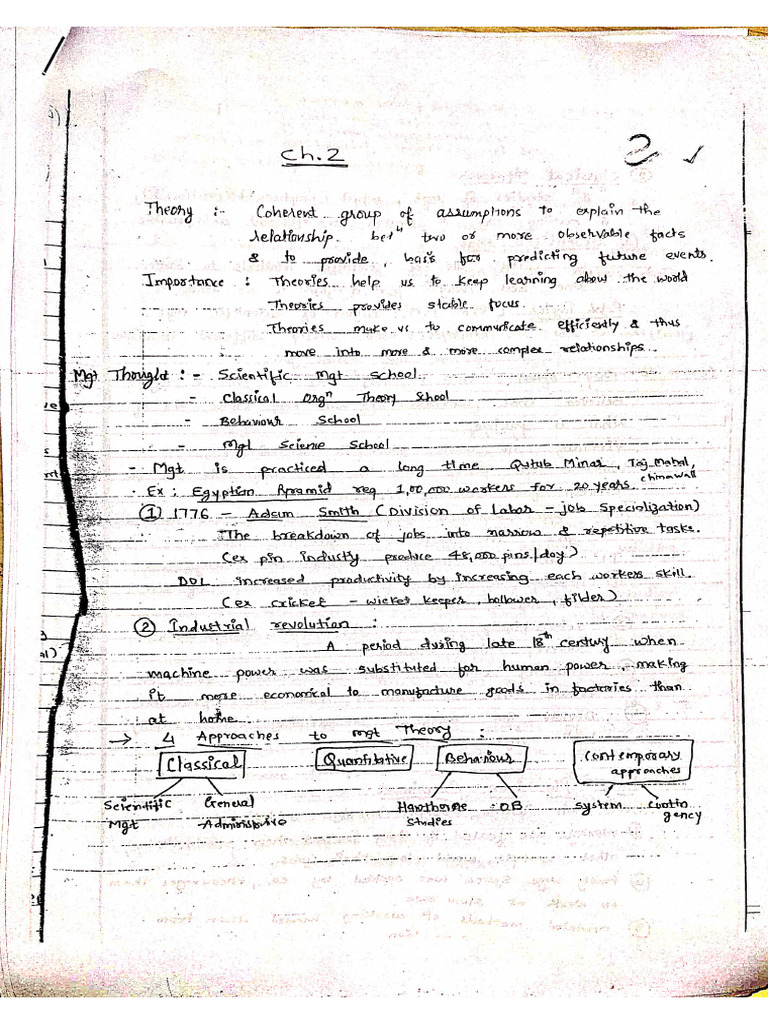 Ch. 2
2
Theory :- Coherent group of assumptions to explain the
relationship betn two or more observable facts
& to provide, basis for predicting future events.
Importance : Theories help us to keep learning about the world
Theories provides stable focus.
Theories make us to communicate efficiently & thus
move into more & more complex relationships..
Mgt Thought :- - Scientific Mgt School
- Classical Orgn Theory School
- Behaviour School
- Mgt Science School
- Mgt is practiced a long time Qutub Minar, Taj Mahal,
china wall
- Ex : Egyptian Apramid req 1,00,000 workers for 20 years.
① 1776 - Adam Smith (Division of Labor - job Specialization)
The breakdown of jobs into narrow & repetitive tasks.
(ex pin industly produce 48,000 pins/day)
DOL increased productivity by increasing each workers skill.
(ex cricket - wicket keeper, bollower, filder)
② Industrial revolution :
A period during late 18th century when
machine power was substituted for human power, making
it more economical to manufacture goods in factories than
at home.
→ 4 Approaches to mgt Theory :
Classical Quantitative Behaviour Contemporary
approaches
Scientific General Hawthorne OB system contin
Mgt Administrive Studies gency